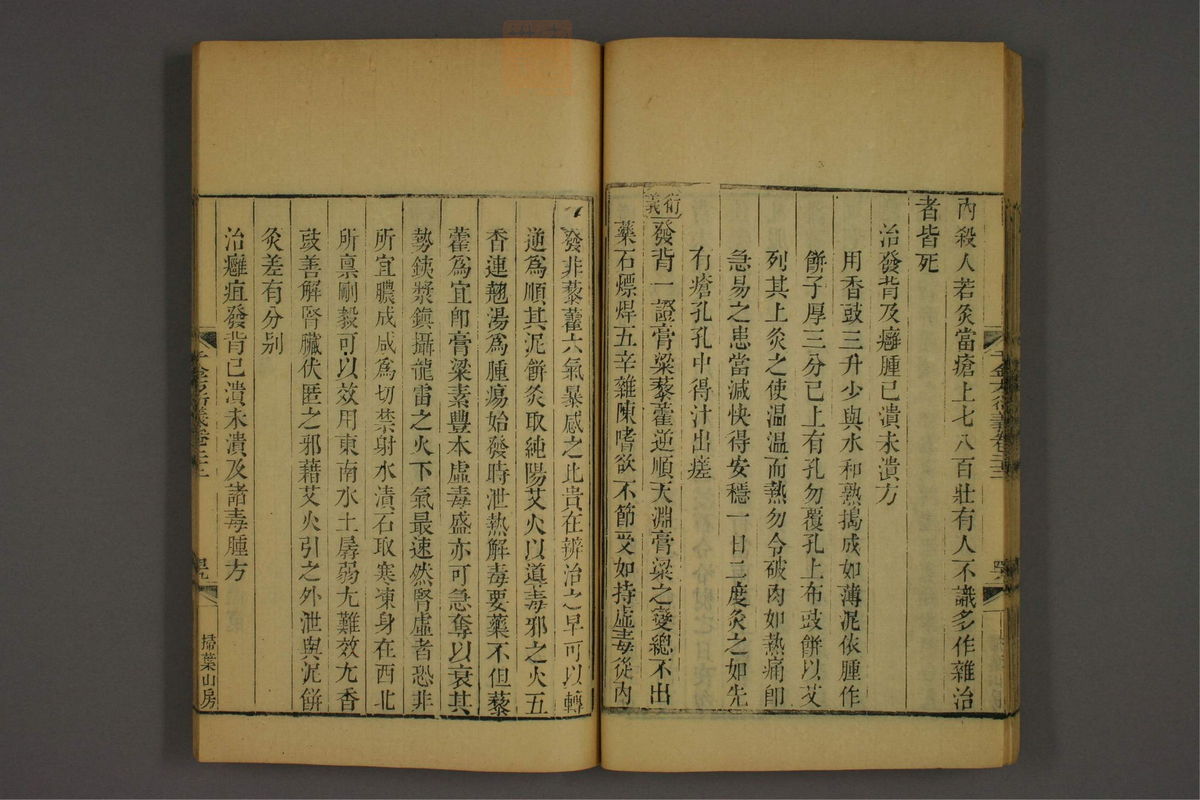 內殺人若灸當瘡上七八百壯有人不識多作雜治
者皆死
治發背及癰腫已潰未潰方
用香豉三升少與水和熟搗成如薄泥依腫作
餅子厚三分已上有孔勿覆孔上布豉餅以艾
列其上灸之使温温而熱勿令破肉如熱痛卽
急易之患當減快得安穩一日二度灸之如先
有瘡孔孔中得汁出瘥
衍義
發背一證膏粱藜藿逆順天淵膏粱之變總不出
藥石熛焊五辛雜陳嗜欲不節受如持虛毒從內
發非藜藿六氣暴感之比貴在辨治之早可以轉
逆爲順其泥餅灸取純陽艾火以導毒邪之火五
香連翹湯爲腫瘍始發時泄熱解毒要藥不但藜
藿爲宜卽膏粱素豐本虛毒盛亦可急奪以衰其
勢鐵漿鎭攝龍雷之火下氣最速然腎虛者恐非
所宜膿成咸爲切禁射水漬石取寒凍身在西北
所禀剛毅可以效用東南水土孱弱尢難效尢香
豉善解腎臟伏匿之邪藉艾火引之外泄與泥餅
灸差有分别
治癰疽發背已潰未潰及諸毒腫方
掃葉山房